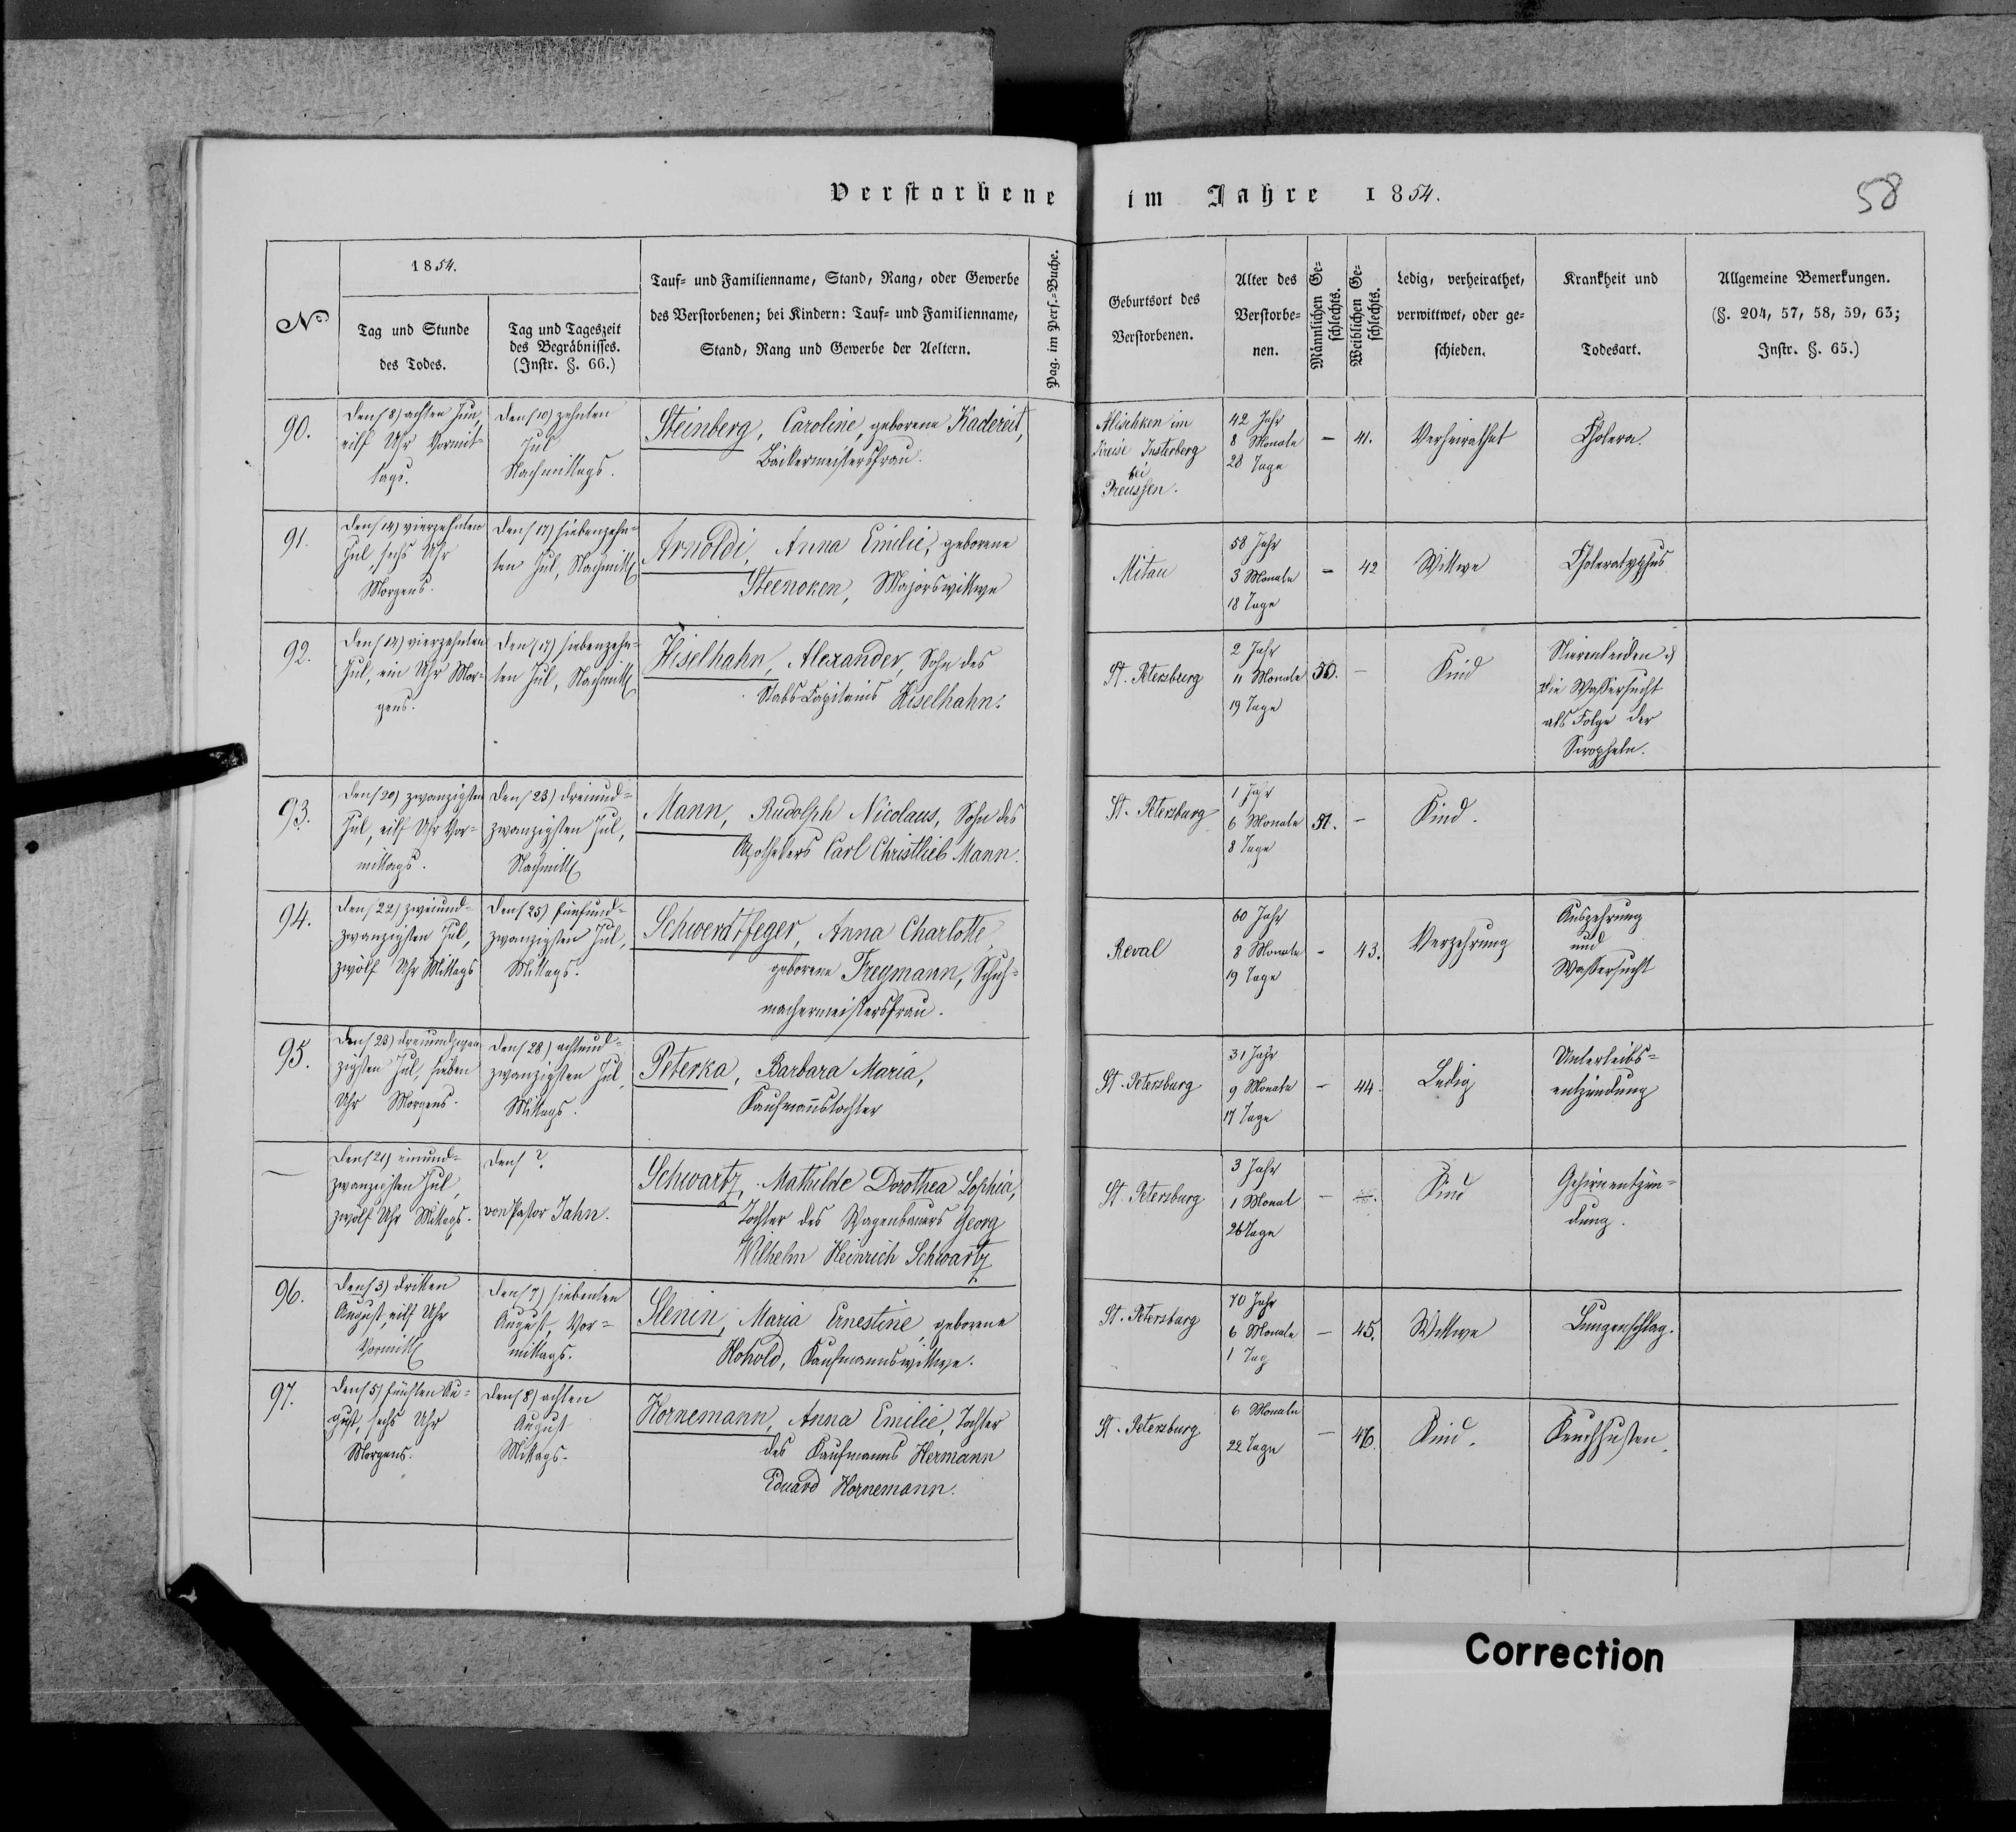 Verstorbene im Jahre 1854.
58
No
1854.
Tag und Stunde
des Todes.
Tag und Tageszeit
des Begräbnisses.
(Instr. §. 66.)
Tauf- und Familienname, Stand, Rang, oder Gewerbe
des Verstorbenen; bei Kindern: Tauf- und Familienname,
Stand, Rang und Gewerbe der Aeltern.
Pag. im Pers.-Buche.
Geburtsort des
Verstorbenen.
Alter des
Verstorbe-
nen.
Männlichen Ge-
schlechts.
Weiblichen Ge-
schlechts.
Ledig, verheirathet,
verwittwet, oder ge-
schieden.
Krankheit und
Todesart.
Allgemeine Bemerkungen.
(§. 204, 57, 58, 59, 63;
Instr. §. 65.)
90.
Den (8) achten
eilf Uhr Vormit-
tags.
Den (10) zehnten
Jul
Nachmittags.
Steinberg, Caroline, geborene Kadereit,
Bäckermeistersfrau.
Alischken im
Kreise Insterberg
bei
Preussen.
42 Jahr
8 Monate
28 Tage
-
41.
Verheirathet
Cholera.
91.
Den (14) vierzehnten
Jul, sechs Uhr
Morgens.
Den (17) siebenzehn-
ten Jul, Nachmitt
Arnoldi, Anna Emilie, geborene
Steenoken, Majorswittwe
Mitau
58 Jahr
3 Monate
18 Tage
-
42
Wittwe
Choleratyphus
92.
Den (14) vierzehnten
Jul, ein Uhr Mor-
gens.
Den (17) siebenzehn-
ten Jul, Nachmitt
Hiselhahn, Alexander, Sohn des
Stabs-Capitains Hiselhahn.
St. Petersburg
2 Jahr
11 Monate
19 Tage
50.
-
Kind
Nierenleiden &
die Wassersucht
als Folge der
Scropheln.
93.
Den (20) zwanzigsten
Jul, eilf Uhr Vor-
mittags.
Den (23) dreiund-
zwanzigsten Jul,
Nachmitt
Mann, Rudolph Nicolaus, Sohn des
Apothekers Carl Christlieb Mann.
St. Petersburg
1 Jahr
6 Monate
8 Tage
51.
-
Kind.
94.
Den (22) zweiund-
zwanzigsten Jul,
zwölf Uhr Mittags
Den (25) fünfund-
zwanzigsten Jul,
Mittags.
Schwerdtfeger, Anna Charlotte,
geborene Freymann, Schuh-
machermeistersfrau.
Reval
60 Jahr
8 Monate
19 Tage
-
43.
Verzehrung
Auszehrung
und
Wassersucht
95.
Den (23) dreiundzwan
zigsten Jul, sieben
Uhr Morgens.
Den (28) achtund-
zwanzigsten Jul,
Mittags.
Peterka, Barbara Maria,
Kaufmannstochter
St. Petersburg
31 Jahr
9 Monate
17 Tage
-
44.
Ledig
Unterleibs-
entzündung
—
Den (21) einund-
zwanzigsten Jul,
zwölf Uhr Mittags.
Den ?
von Pastor Jahn.
Schwartz, Mathilde Dorothea Sophia,
Tochter des Wagenbauers Georg
Wilhelm Heinrich Schwartz
St. Petersburg
3 Jahr
1 Monat
26 Tage
-
Kind
Gehirnentzün-
dung.
96.
Den (3) dritten
August, eilf Uhr
Vormitt
Den (7) siebenten
August, Vor-
mittags.
Slenin, Maria Ernestine, geborene
Hohold, Kaufmannswittwe.
St. Petersburg
70 Jahr
6 Monate
1 Tag
-
45.
Wittwe
Lungenschlag.
97.
Den (5) fünften Au-
gust, sechs Uhr
Morgens.
Den (8) achten
August
Mittags.
Hornemann, Anna Emilie, Tochter
des Kaufmanns Hermann
Eduard Hornemann.
St. Petersburg
6 Monate
22 Tage
-
46.
Kind.
Keuchhusten.
Correction